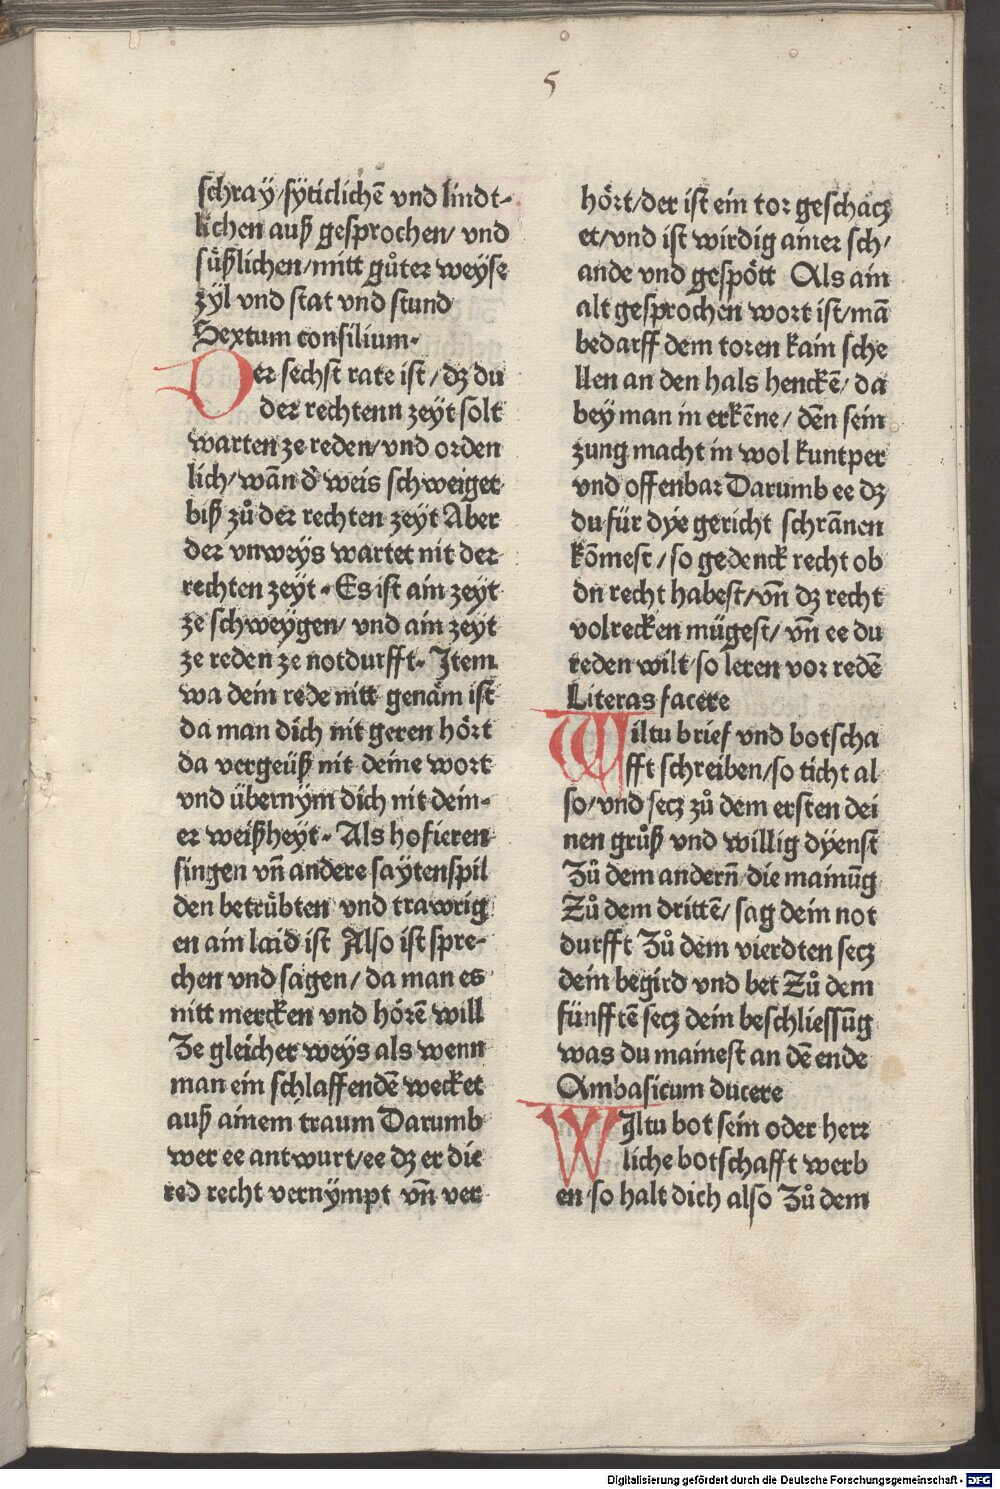 5
schraÿ/sÿticlichē vnd lindt-
lichen auß gesprochen/ vnd
süßlichen/mitt gůter weÿse
zÿl vnd stat vnd stund
Sextum consilium.
Der sechst rate ist/dz du
der rechtenn zeÿt solt
warten ze reden/vnd orden
lich/wān d' weis schweiget
biß zů der rechten zeÿt Aber
der vnweÿs wartet nit der
rechten zeÿt. Es ist ain zeÿt
ze schweÿgen/ vnd ain zeÿt
ze reden ze notdurfft. Jtem
wa dein rede nitt genäm ist
da man dich nit geren hört
da vergeüß nit deine wort
vnd übernÿm dich nit dein-
er weißheÿt. Als hofieren
singen vn̄ andere saÿtenspil
den betrübten vnd trawrig
en ain laid ist Also ist spre-
chen vnd sagen/da man es
nitt mercken vnd hörē will
Ze gleicher weÿs als wenn
man ein schlaffendē wecket
auß ainem traum Darumb
wer ee antwurt/ee dz er die
red recht vernÿmpt vn̄ ver
hört/der ist ein tor geschäcz
et/vnd ist wirdig ainer sch/
ande vnd gespött Als ain
alt gesprochen wort ist/mā
bedarff dem toren kain sche
llen an den hals henckē/da
beÿ man in erkēne/ dēn sein
zung macht in wol kuntper
vnd offenbar Darumb ee dz
du für dÿe gericht schrānen
kōmest/so gedenck recht ob
dn recht habest/vn̄ dz recht
volrecken mügest/ vn̄ ee du
reden wilt so leren vor redē
Literas facere
Wiltu brief vnd botscha
fft schreiben/so ticht al
so/vnd secz zů dem ersten dei
nen grůß vnd willig dÿenst
Zů dem andern̄ die mainūg
Zů dem drittē/ sag dein not
durfft Zů dem vierdten secz
dein begird vnd bet Zů dem
fünfftē secz dein beschliessūg
was du mainest an dē ende
Ambasicum ducere
WJltu bot sein oder herr
liche botschafft werb
en/so halt dich also Zů dem
Digitalisierung gefördert durch die Deutsche Forschungsgemeinschaft - DFG